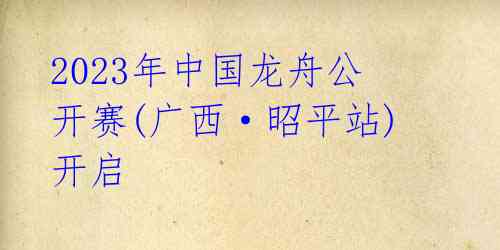 2023年中国龙舟公
开赛(广西·昭平站)
开启